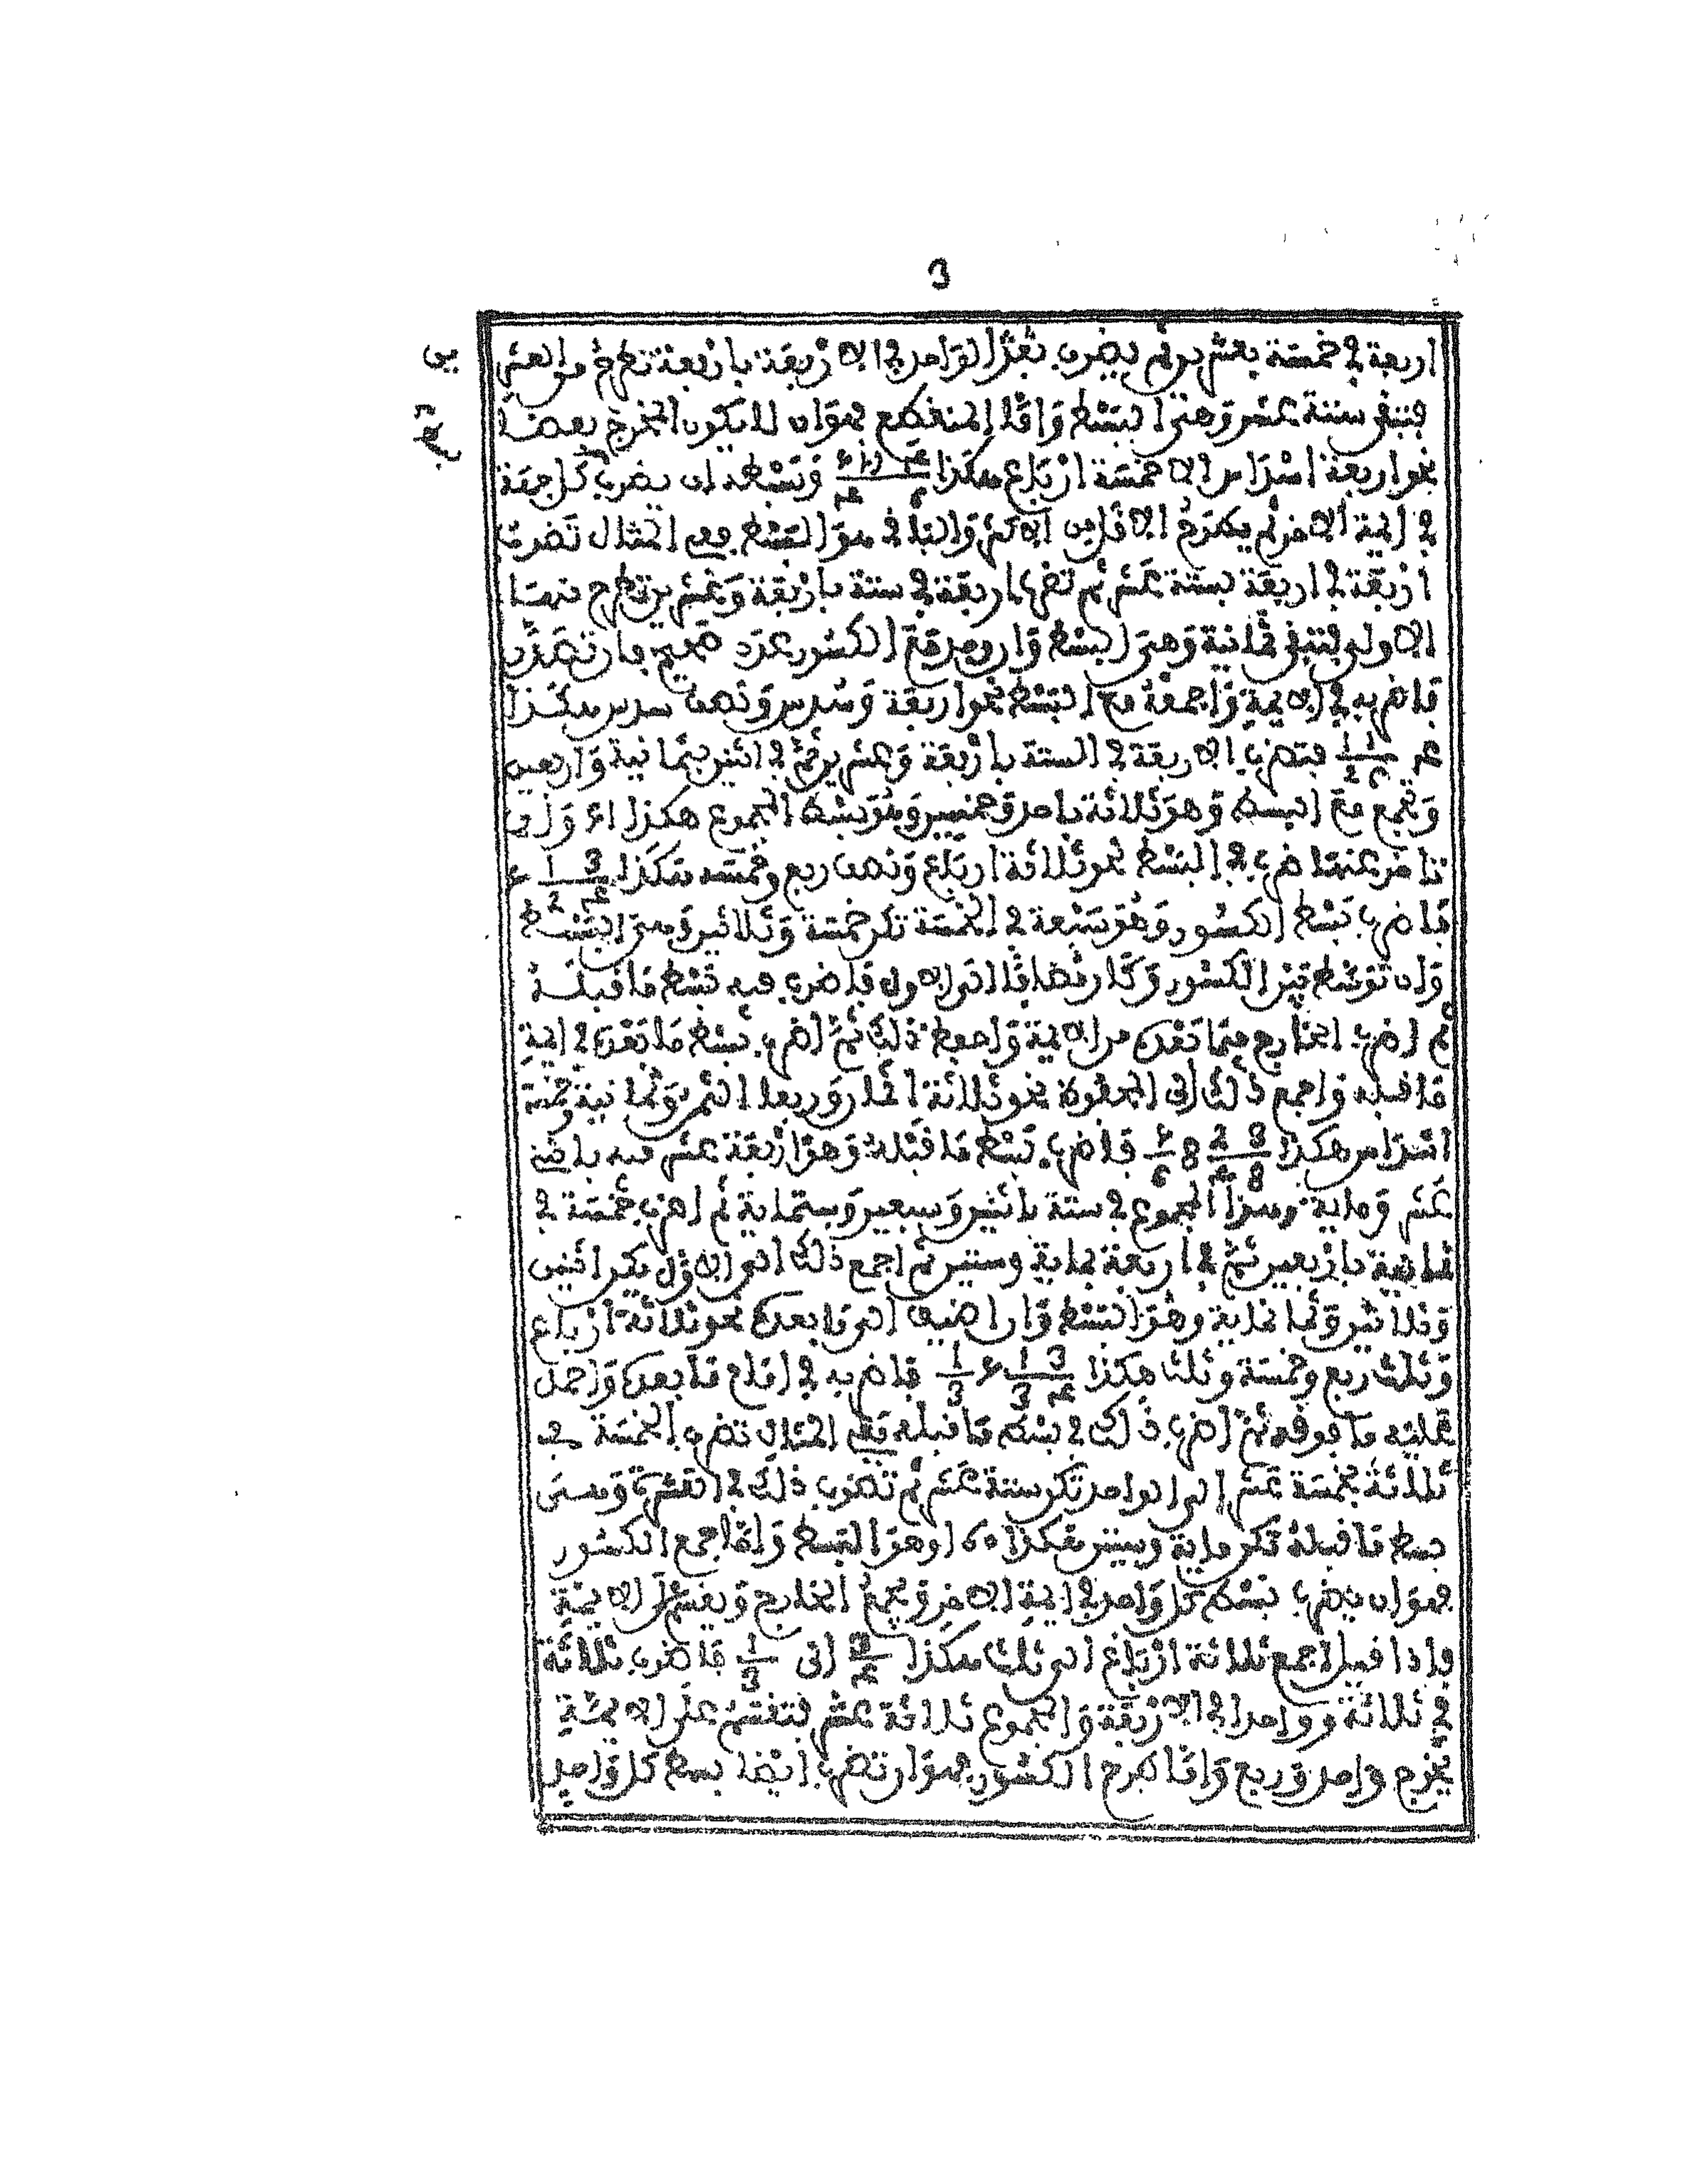 3
اربعة في خمسة بعشرين ثم يضرب بعد الواحد في الاربعة باربعة تطرح من العشرين
فتبقى ستة عشر وهي البسط واما المنقطع فهو ان لا يكون المخرج بعضا
نحو اربعة اسداس الا خمسة ارباع هكذا وبسطه ان يضرب كل جهة
في ايمة الاخر ثم يطرح الاقل من الاكثر والباقي هو البسط ففي المثال تضرب
اربعة في اربعة بستة عشر ثم تضرب اربعة في ستة باربعة وعشرين تطرح منها
الاولى فتبقى ثمانية وهي البسط وان وجد مع الكسور عدد صحيح فان تصدر
فاضربه في الايمة واجمعه مع البسط نحو اربعة وسدس ونصف سدس هكذا
فتضرب الاربعة في الستة باربعة وعشرين ثم في اثنين بثمانية واربعين
وتجمع مع البسط وهو ثلاثة باحد وخمسين وهو بسط المجموع هكذا وان
تاخر عنها ضرب في البسط نحو ثلاثة ارباع ونصف ربع وخمسة هكذا
فاضرب بسط الكسور وهو سبعة في الخمسة تكن خمسة وثلاثين وهي البسط
وان توسط بين الكسور وكان مضافا الى الاول فاضرب فيه بسط ما قبله
ثم اضرب الخارج فيما بعده من الايمة واجمع ذلك ثم اضرب بسط ما بعده في ايمة
ما قبله واجمع ذلك الى المحفوظ نحو ثلاثة اثمان وربعا الثمن وثمانية وخمسة
اسداس هكذا فاضرب بسط ما قبله وهو اربعة عشر فيه باثني
عشر وماية وهذا المجموع في ستة باثنين وسبعين وستماية ثم اضرب خمسة في
ثمانية باربعين ثم في اربعة بماية وستين ثم اجمع ذلك الى الاول تكن اثنين
وثلاثين وثمانماية وهو البسط وان اضيف الى ما بعده نحو ثلاثة ارباع
وثلث ربع وخمسة وثلث هكذا فاضربه في امام ما بعده واحمل
عليه ما فوقه ثم اضرب ذلك في بسط ما قبله ففي المثال تضرب الخمسة في
ثلاثة بخمسة عشر الى الواحد تكن ستة عشر ثم تضرب ذلك في العشرة وهي
بسط ما قبله تكن ماية وستين هكذا وهو البسط واما جمع الكسور
فهو ان يضرب بسط كل واحد في ايمة الاخر ويجمع الخارج ويقسم على الايمة
واذا قيل اجمع ثلاثة ارباع الى ثلث هكذا الى فاضرب ثلاثة
في ثلاثة وواحدا في الاربعة والمجموع ثلاثة عشر فتقسم على الايمة
يخرج واحد وربع واما طرح الكسور فهو ان تضرب ايضا بسط كل واحد